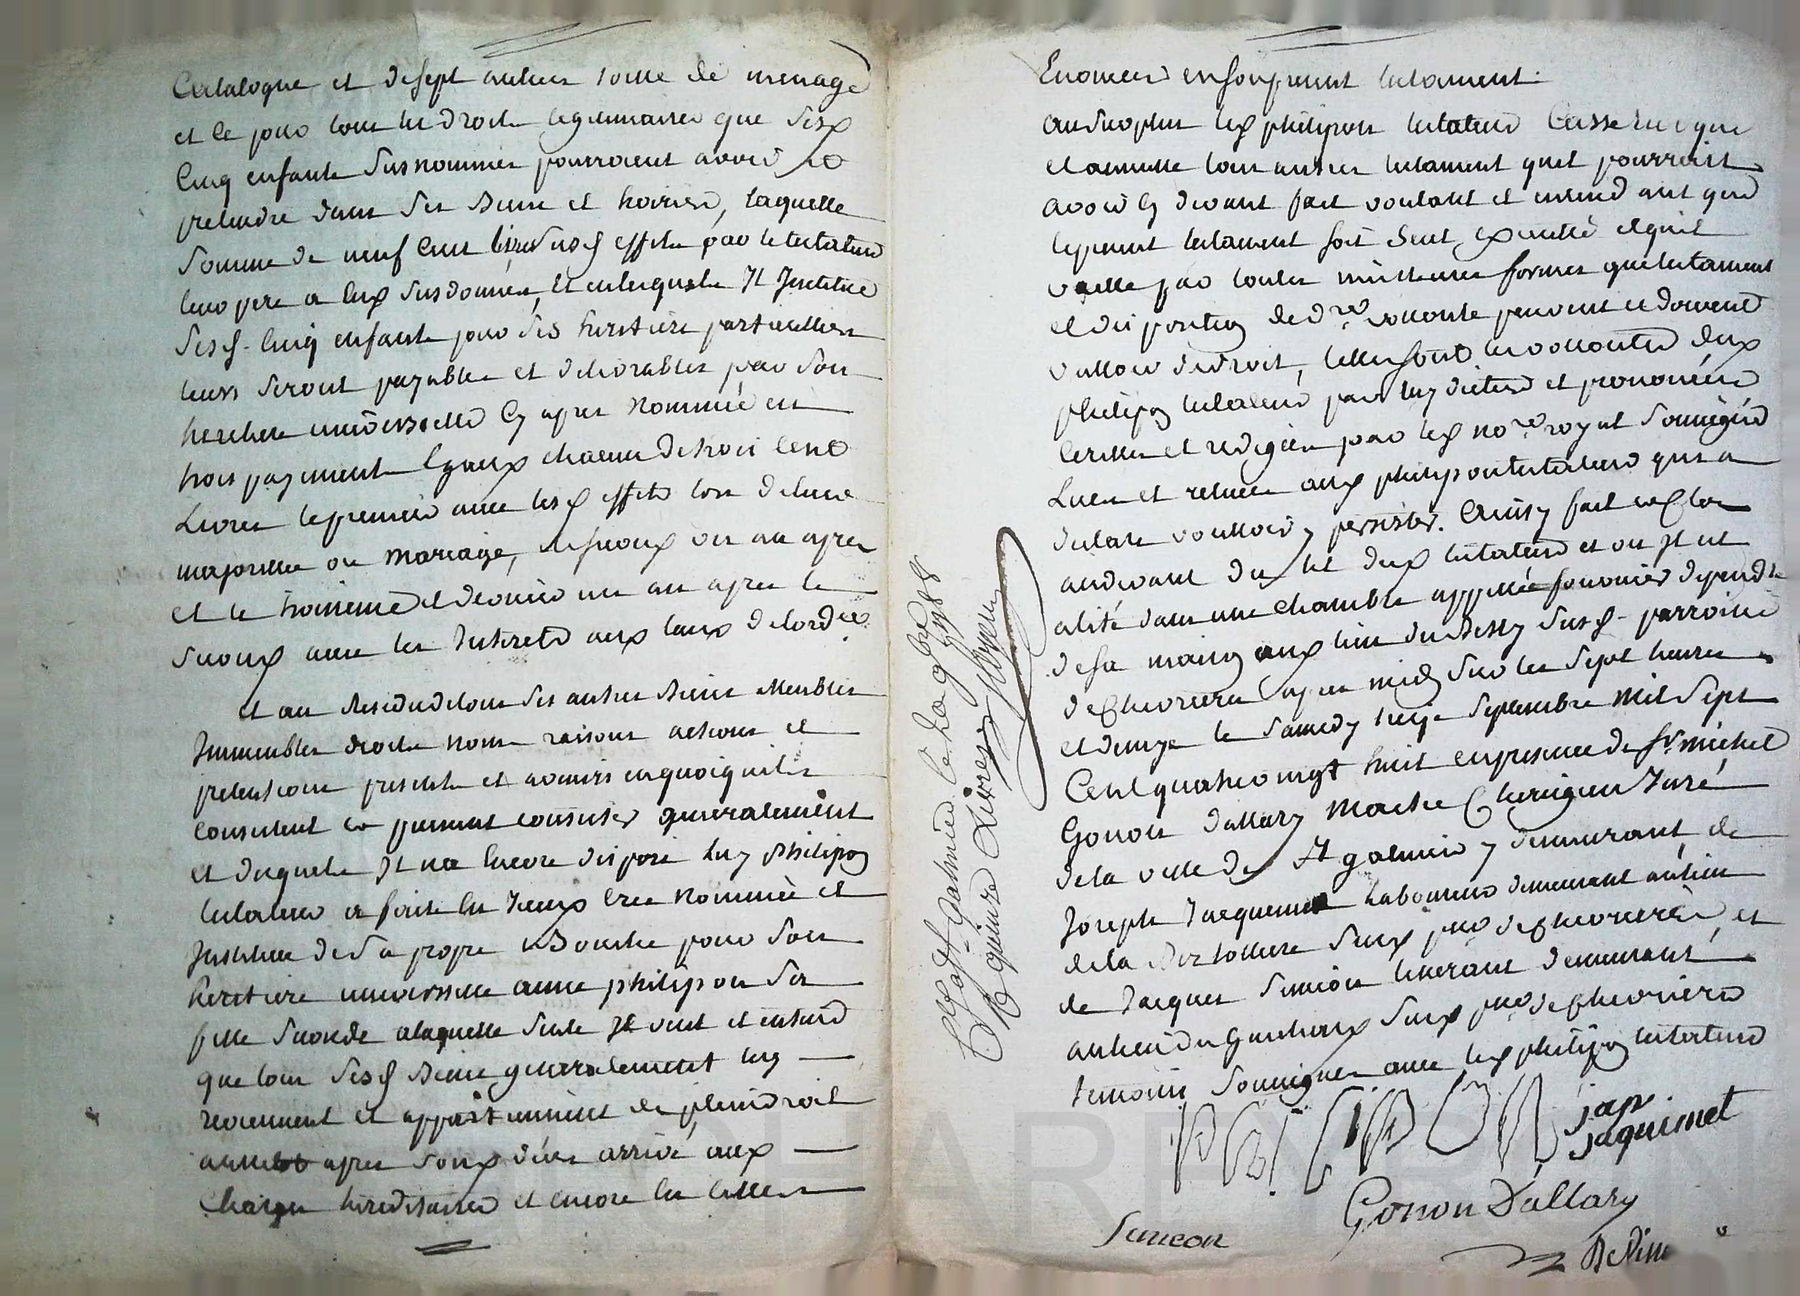 Catalogue et desept aulnes toille de menage
et ce pour tous les droits legitimaires que sesd
Cinq enfants susnommés pourroient avoir et
pretendre dans ses Biens et hoiries, laquelle
somme de neuf Cent livres susd effets par le testateur
leur pere a eux susdonnés, et en lesquels Il Institue
sesd. Cinq enfants pour ses heritiers particulliers
leurs seront payables et delivrables par son
heritiere universelle Cy apres Nommée en
trois payements Egaux chacun de trois Cent
Livres le premier avec lesd effets lors de leur
majorité ou Mariage, un an apres
et le troisieme et dernier un an apres le
avec les Interets aux taux de lordce
et au Residu de tous ses autres Biens Meubles
Immeubles droits noms raisons actions et
pretentions presents et avenirs en quoiqu'ils
consistent et puissent consister generalement
et desquels Il na Encore disposé led philipon
testateur a fait Créé Nommée et
Instituée de Sa propre Bouche pour Son
heritiere universelle anne philipon Sa
fille seconde a laquelle seule Il veut et entend
que tous sesd Biens generalement luy
reviennent et appartiennent de plein droit
apres sond déces arrivé aux
Charges hereditaires et encore les
Enoncées en son present testament.
Au surplus led philipon testateur Casse revoque
et annulle tous autres testament quil pourroit
avoir Cy devant fait voulant et entendant que
le present testament soit seul executé et quil
vaille par toutes meilleures formes que testament
et disposition de dre volonté peuvent et doivent
valloir de droit, telles sont les volontés dud
philipon testateur par luy dictées et prononcées
Ecrittes et redigées par led nore royal soussigné
Lues et relues aud philipon testateur qui a
declaré voulloir y persister. Ainsy fait et Clos
audevant du lit dud testateur et ou Il est
alité dans une chambre appellée fournier depend te
de sa maison aud lieu du susd. parroisse
de Chevrieres apres midy sur les sept heures
et demye le samedy treize septembre Mil Sept
Cent quatre vingt huit en presence de sr. michel
Gonon dallary Maitre Chirurgien Juré
de la ville de St galmier y demeurant, de
Joseph Jacquemet Laboureur demeurant au lieu
de la susd prse de Chevrieres et
de Jacques Simeon tisserant demeurant
au lieu du susd prse de Chevrieres
temoins soussignés avec led philipon testateur
jap
jaquimet
Gonon Dallary
Simeon
Cllé a St. Galmier le 1788